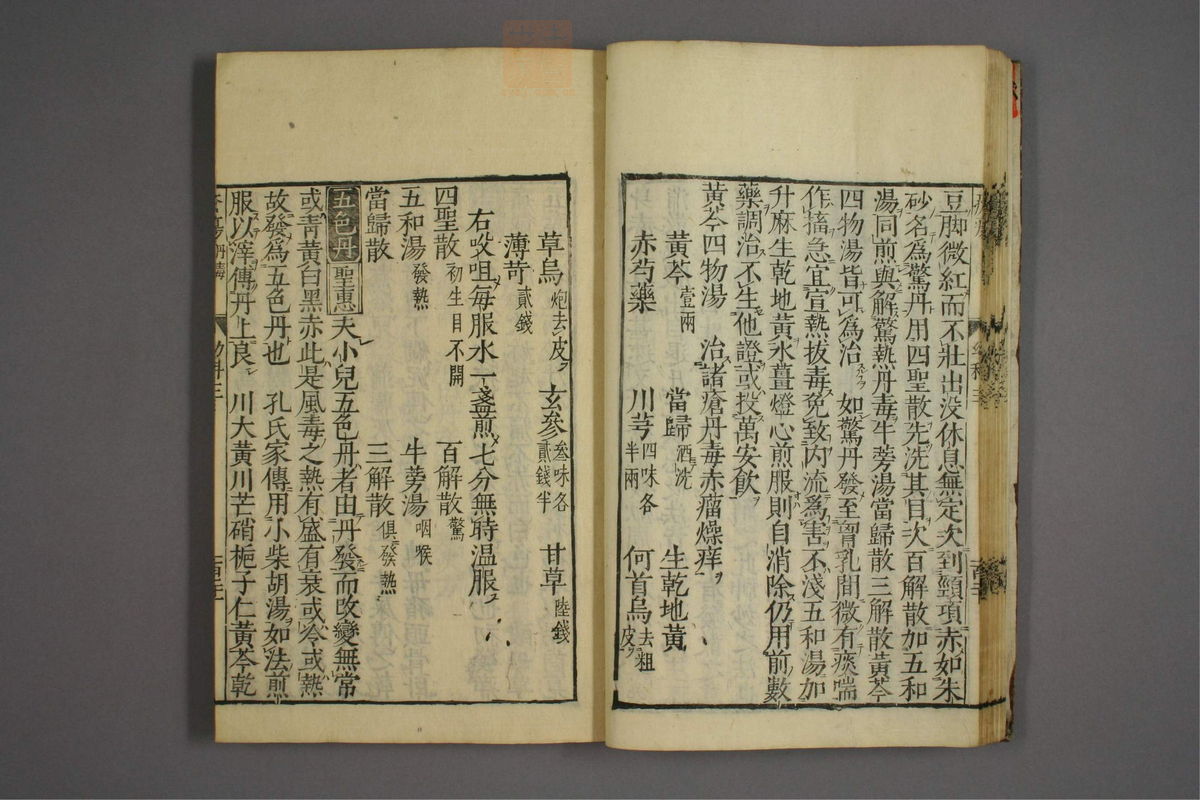 豆脚微紅而不壯出没休息無定次到頸項赤如朱
砂名為驚丹用四聖散先洗其目次百解散加五和
湯同煎與解驚熱丹毒牛蒡湯當歸散三解散黃芩
四物湯皆可為治 如驚丹發至胷乳間微有痰喘
作搐急宜宣熱拔毒免致内流為害不淺五和湯加
升麻生乾地黃氷薑燈心煎服則自消除仍用前數
藥調治不生他證或投萬安飲
黃芩四物湯 治諸瘡丹毒赤瘤燥痒
黃芩壹兩 當歸酒洗 生乾地黃
赤芍藥 川芎四味各半兩 何首烏去粗皮
草烏炮去皮 玄參叄味各貳錢半 甘草陸錢
薄苛貳錢
右㕮咀每服水一盞煎七分無時温服
四聖散初生目不開 百解散驚
五和湯發熱 牛蒡湯咽喉
當歸散 三解散俱發熱
五色丹 聖惠 夫小兒五色丹者由丹發而改變無常
或靑黃白黑赤此是風毒之熱有盛有衰或冷或熱
故發為五色丹也 孔氏家傳用小柴胡湯如法煎
服以滓傅丹上良 川大黃川芒硝梔子仁黃芩乾